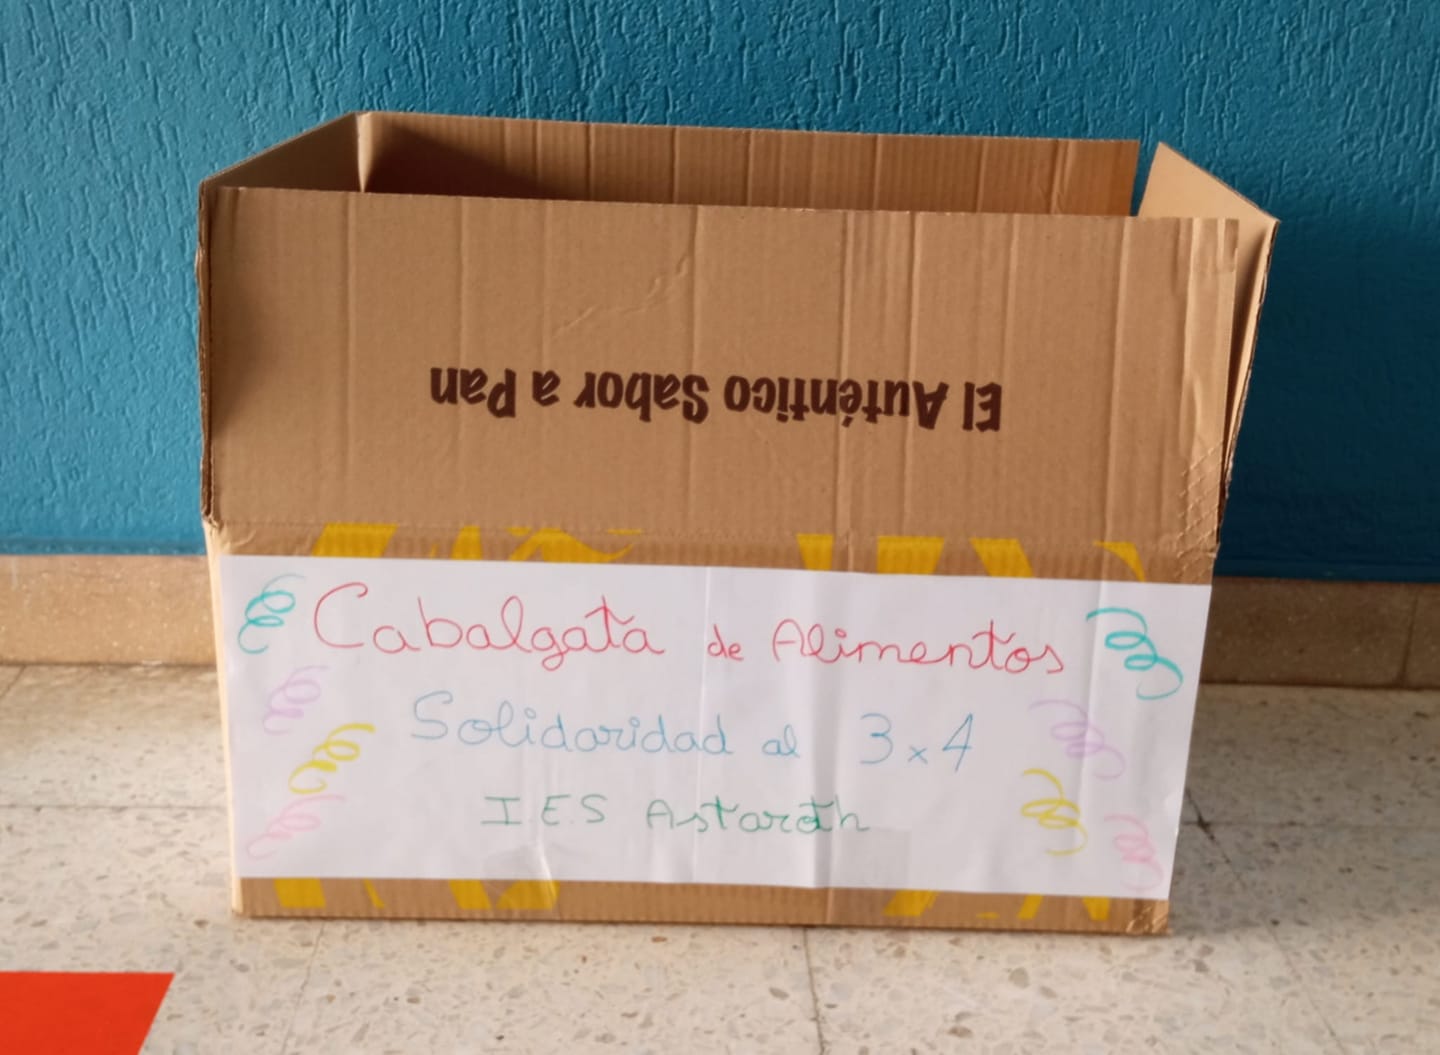 El Auténtico Sabor a Pan
Cabalgata de Alimentos
Solidaridad al 3x4
I.E.S Astaroth